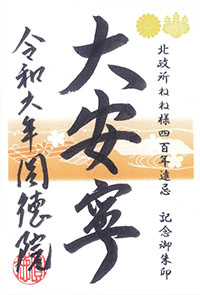 北政所ねね様四百年遠忌 記念御朱印
大安寧
令和六年 圓徳院